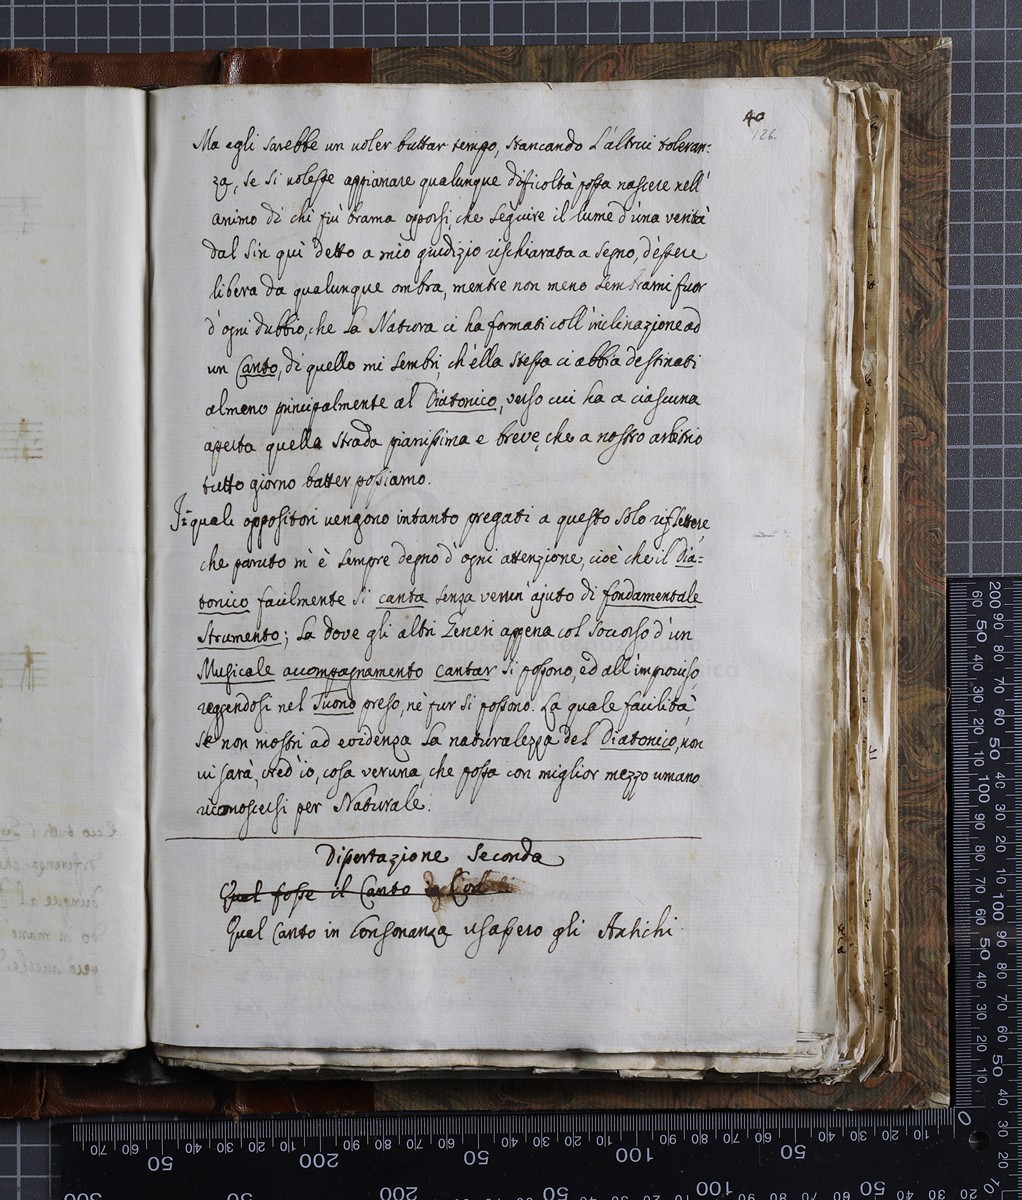 40
126.
Ma egli sarebbe un voler buttar tempo, stancando l'altrui toleran:
za, se si volesse appianare qualunque dificoltà possa nascere nell'
animo di chi più brama opporsi, che seguire il lume d'una verità
dal sin quì detto a mio giudizio rischiarata a segno, d'essere
libera da qualunque ombra, mentre non meno sembrami fuor
d'ogni dubbio, che la Natura ci ha formati coll'inclinazione ad
un Canto, di quello mi sembri, ch'ella stessa ci abbia destinati
almeno principalmente al Diatonico, verso cui ha a ciascuna
aperta quella strada pianissima e breve, che a nostro arbitrio
tutto giorno batter possiamo.
I quali oppositori vengono intanto pregati a questo solo riflettere,
che paruto m'è sempre degno d'ogni attenzione, cioè che il Dia:
tonico facilmente si canta senza verun' ajuto di fondamentale
Strumento; la dove gli altri Generi appena col soccorso d'un
Musicale accompagnamento cantar si possono, ed all'improviso,
reggendosi nel Tuono preso, nè pur si possono. La quale facilità,
se non mostri ad evidenza la naturalezza del Diatonico, non
vi sarà, cred'io, cosa veruna, che possa con miglior mezzo umano
riconoscersi per Naturale.
Dissertazione Seconda
Qual fosse il Canto
Qual Canto in Consonanza usassero gli Antichi.